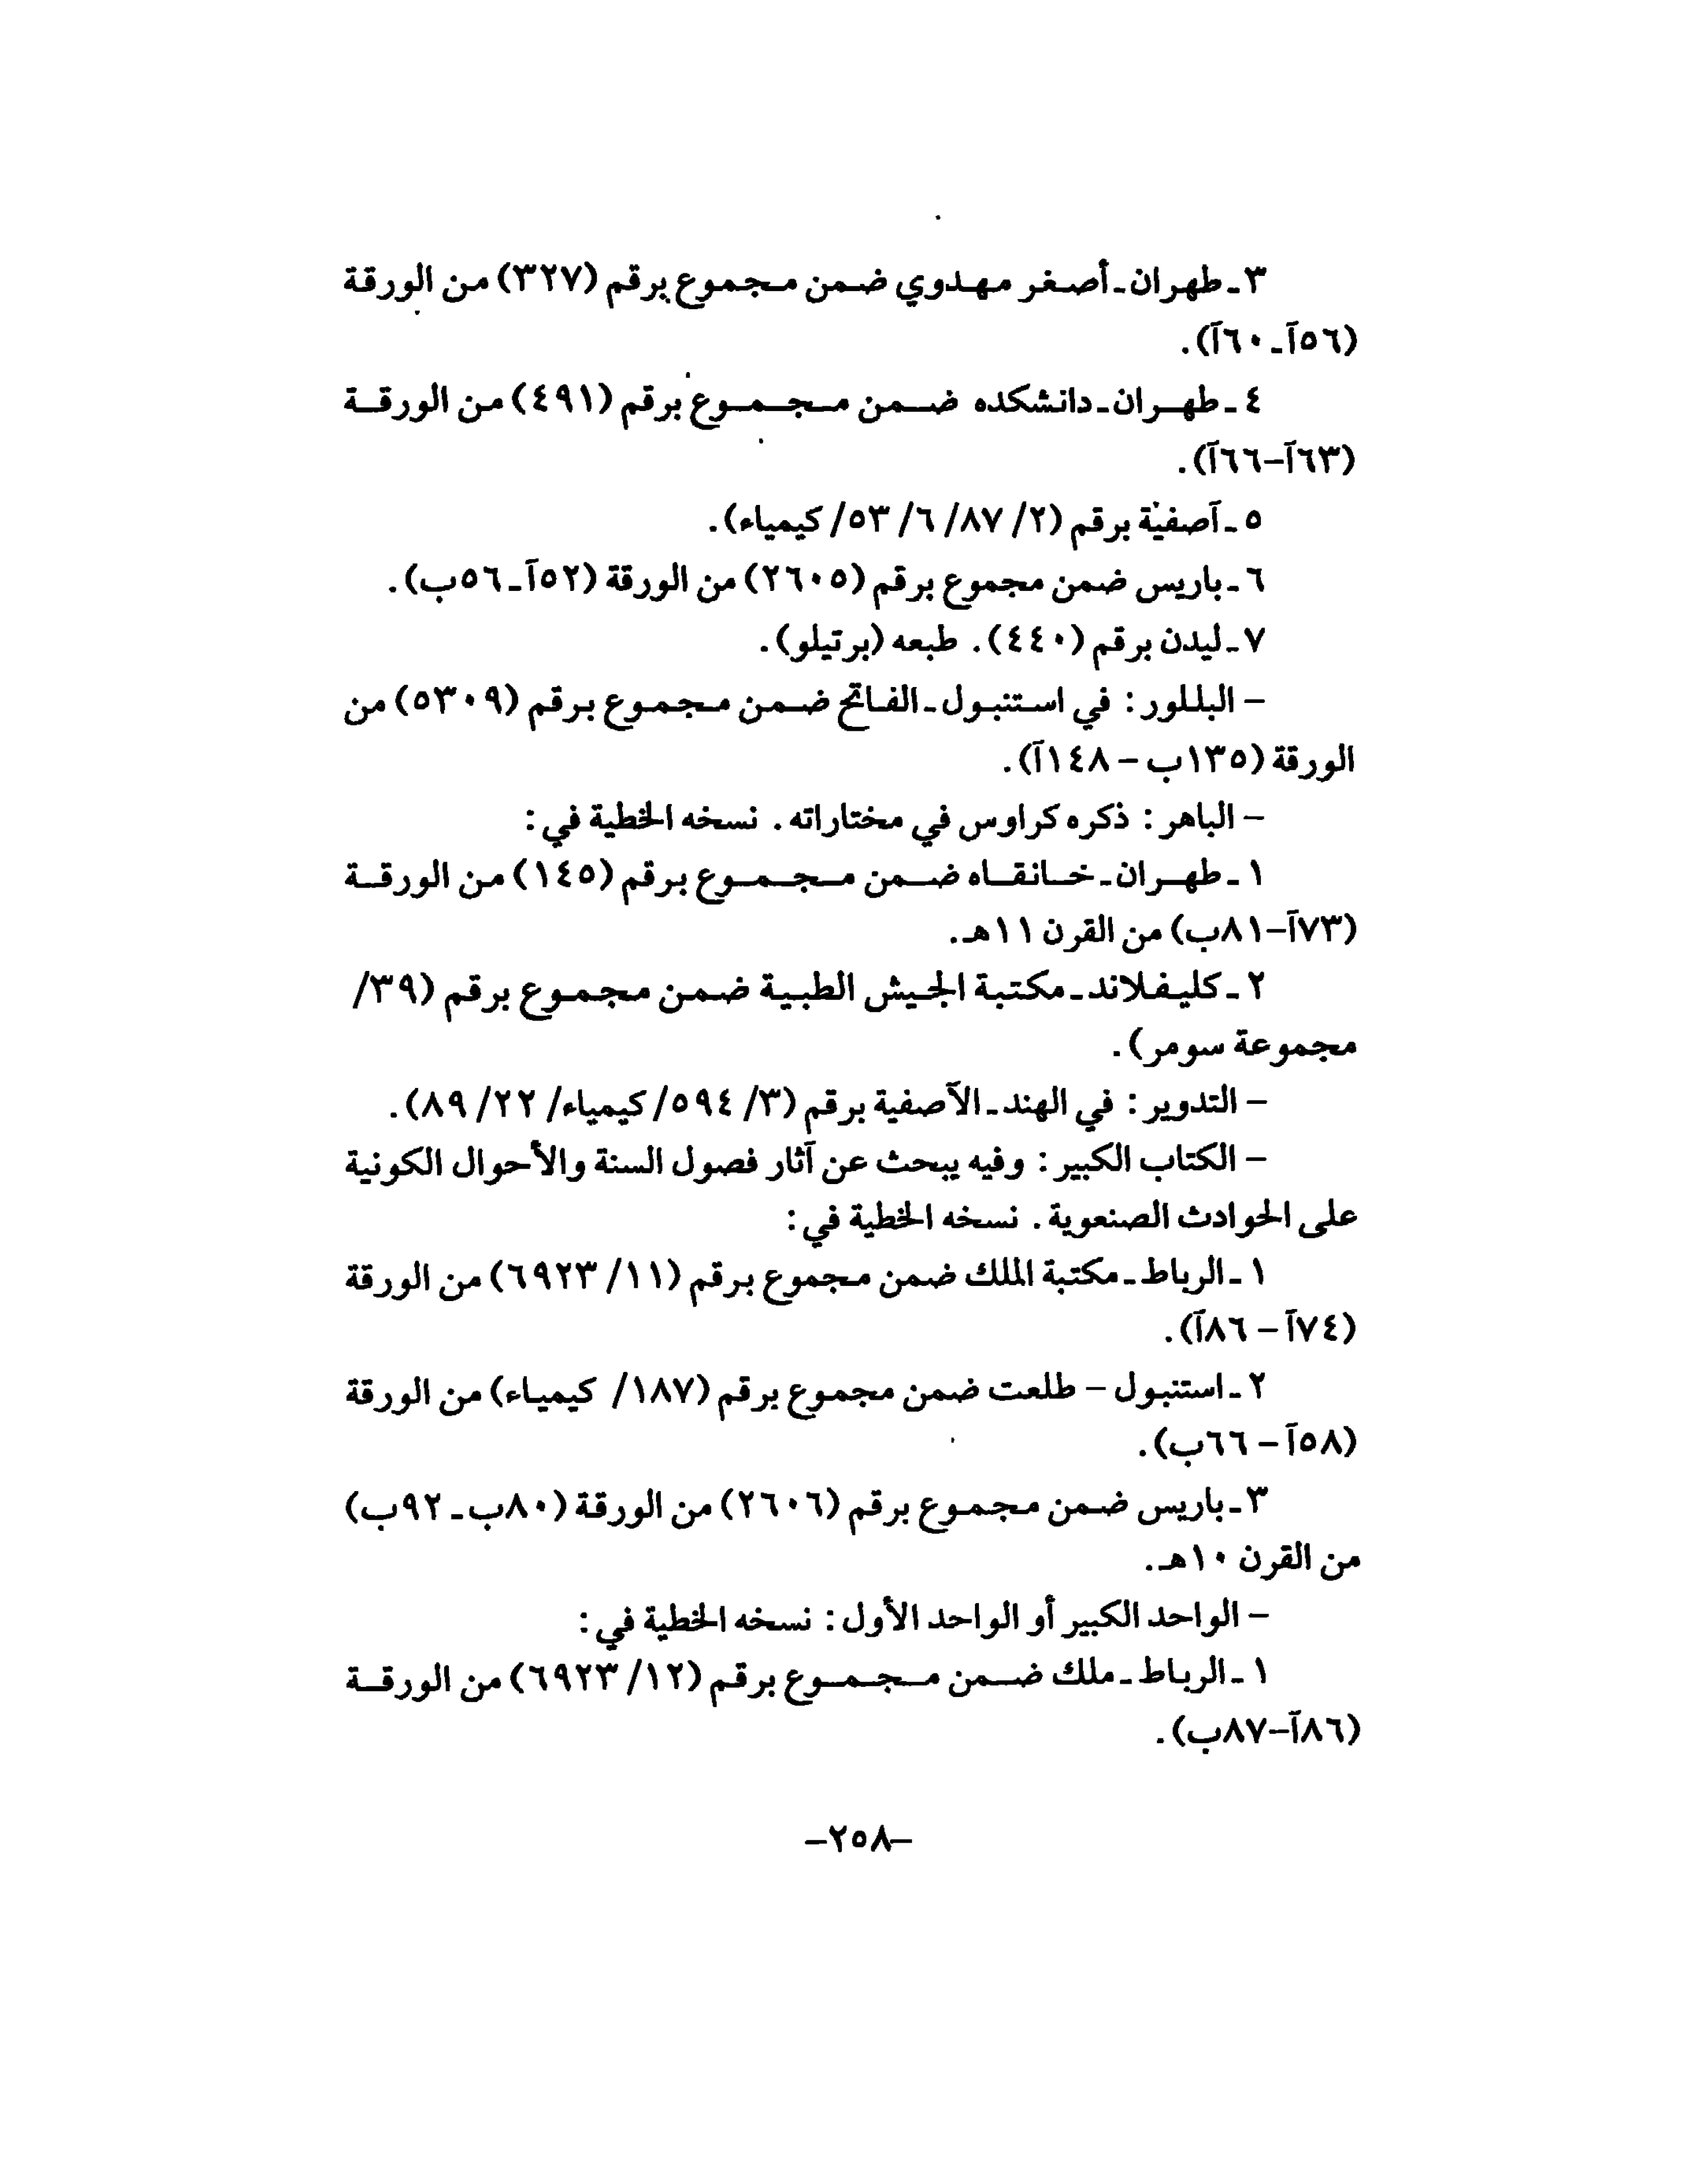 ٣ ـ طهران ـ أصغر مهدوي ضمن مجموع برقم (٣٢٧) من الورقة
(٥٦آ ـ ٦٠آ).
٤ ـ طهران ـ دانشكده ضمن مجموع برقم (٤٩١) من الورقة
(٦٣آ–٦٦آ).
٥ ـ آصفية برقم (٢/ ٨٧/ ٦/ ٥٣/ كيمياء).
٦ ـ باريس ضمن مجموع برقم (٢٦٠٥) من الورقة (٥٢آ ـ ٥٦ب).
٧ ـ ليدن برقم (٤٤٠). طبعه (برتيلو).
– البللور: في استنبول ـ الفاتح ضمن مجموع برقم (٥٣٠٩) من
الورقة (١٣٥ب – ١٤٨آ).
– الباهر: ذكره كراوس في مختاراته. نسخه الخطية في:
١ ـ طهران ـ خانقاه ضمن مجموع برقم (١٤٥) من الورقة
(٧٣آ–٨١ب) من القرن ١١هـ.
٢ ـ كليفلاند ـ مكتبة الجيش الطبية ضمن مجموع برقم (٣٩/
مجموعة سومر).
– التدوير: في الهند ـ الآصفية برقم (٣/ ٥٩٤/ كيمياء/ ٢٢/ ٨٩).
– الكتاب الكبير: وفيه يبحث عن آثار فصول السنة والأحوال الكونية
على الحوادث الصنعوية. نسخه الخطية في:
١ ـ الرباط ـ مكتبة الملك ضمن مجموع برقم (١١/ ٦٩٢٣) من الورقة
(٧٤آ – ٨٦آ).
٢ ـ استنبول – طلعت ضمن مجموع برقم (١٨٧/ كيمياء) من الورقة
(٥٨آ – ٦٦ب).
٣ ـ باريس ضمن مجموع برقم (٢٦٠٦) من الورقة (٨٠ب ـ ٩٢ب)
من القرن ١٠هـ.
– الواحد الكبير أو الواحد الأول: نسخه الخطية في:
١ ـ الرباط ـ ملك ضمن مجموع برقم (١٢/ ٦٩٢٣) من الورقة
(٨٦آ–٨٧ب).
–٢٥٨–